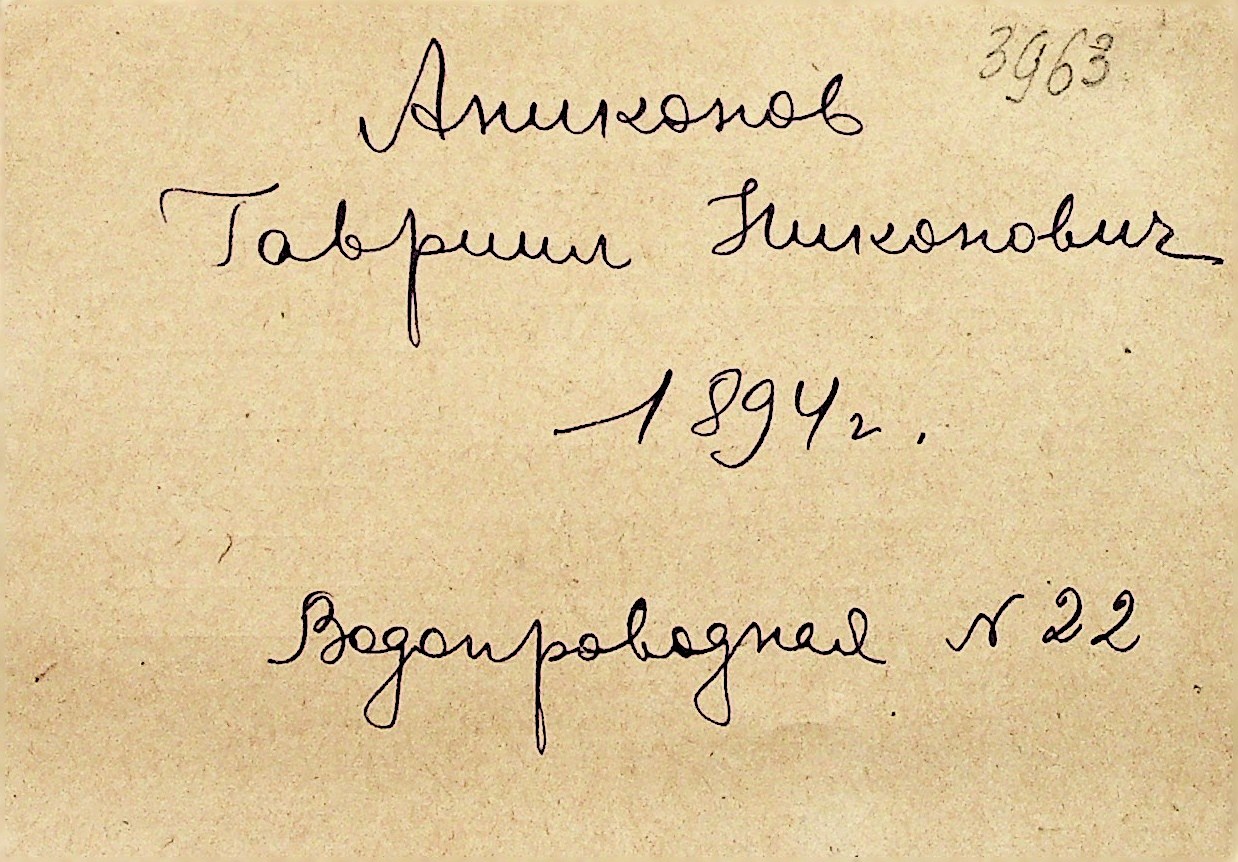 3963
Аниконов
Гавриил Никонович
1894г.
Водопроводная N 22